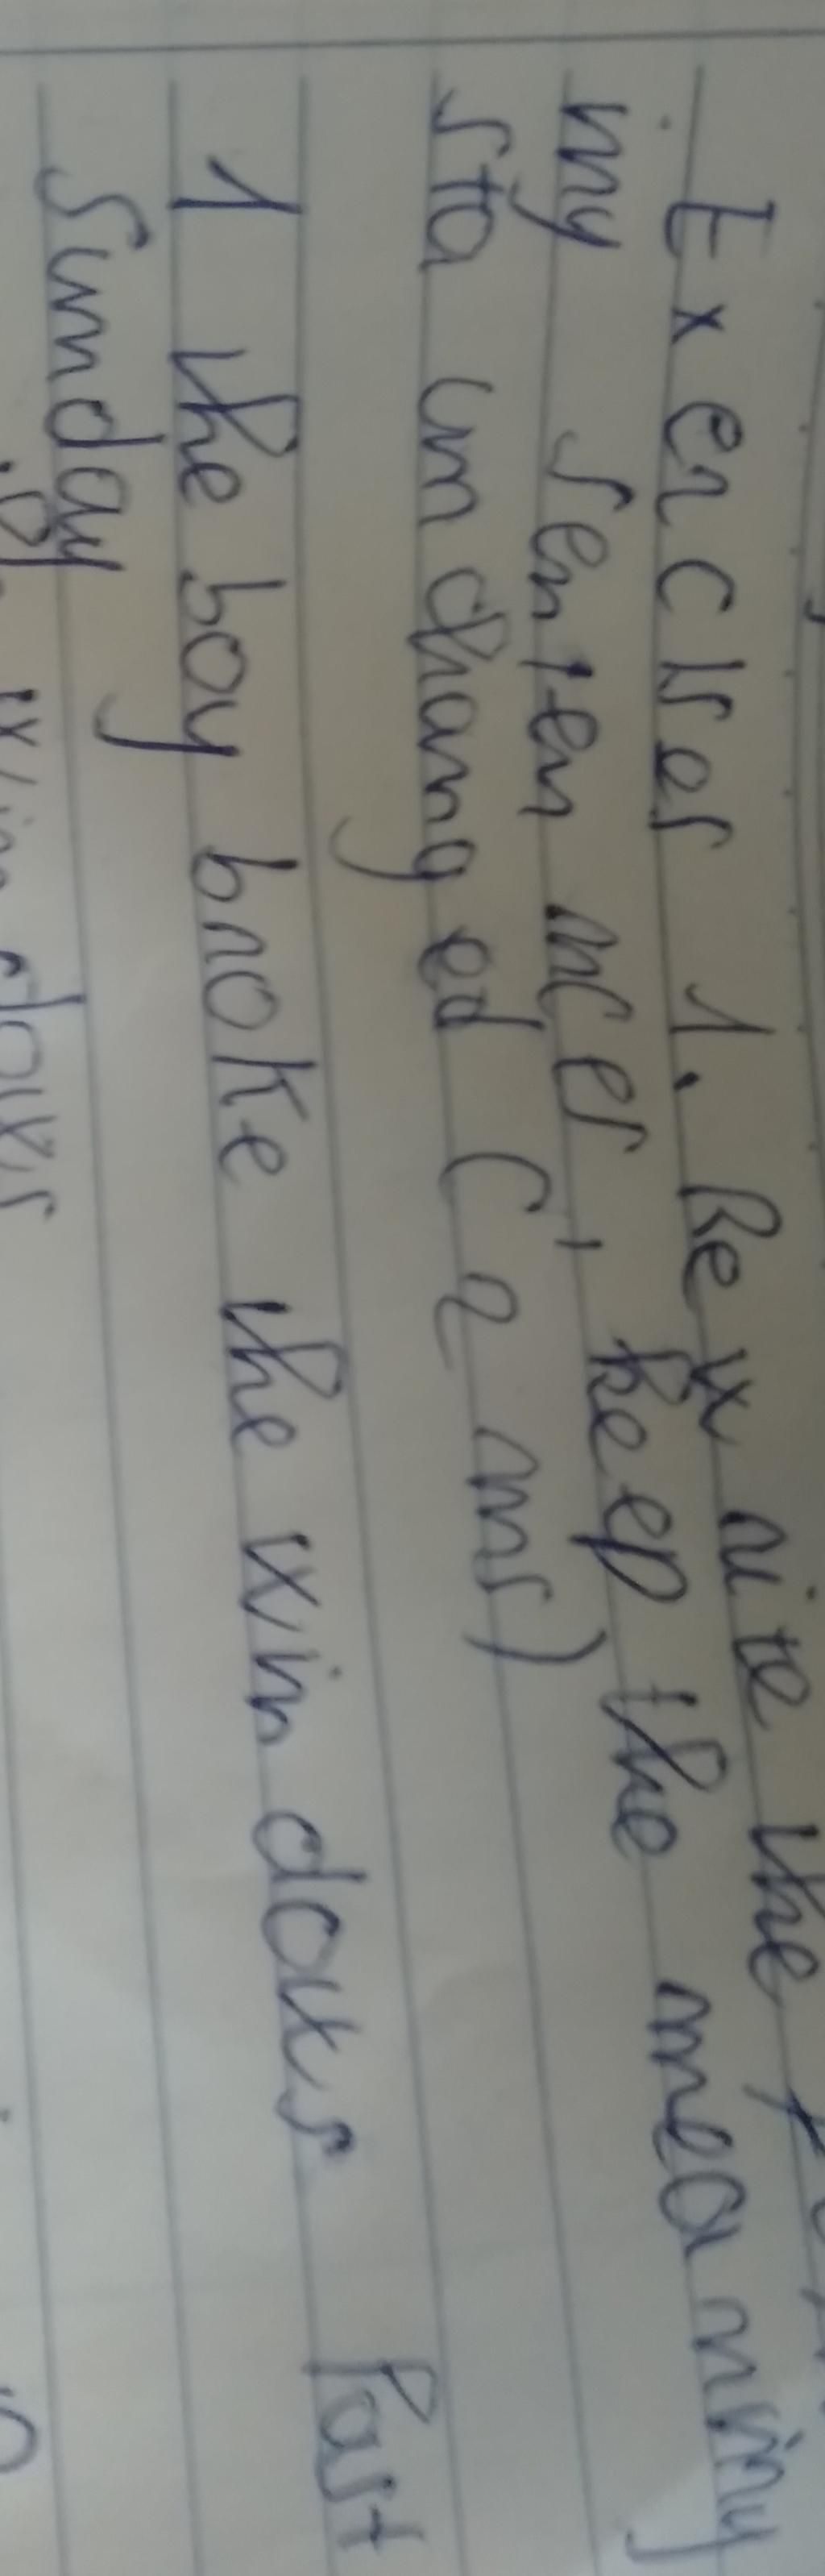 Exercises 1. Rewrite the
my sentennces, keep the meaning
sta unchanged (2 ms)
1 the boy broke the windows Past
Sunday
windows